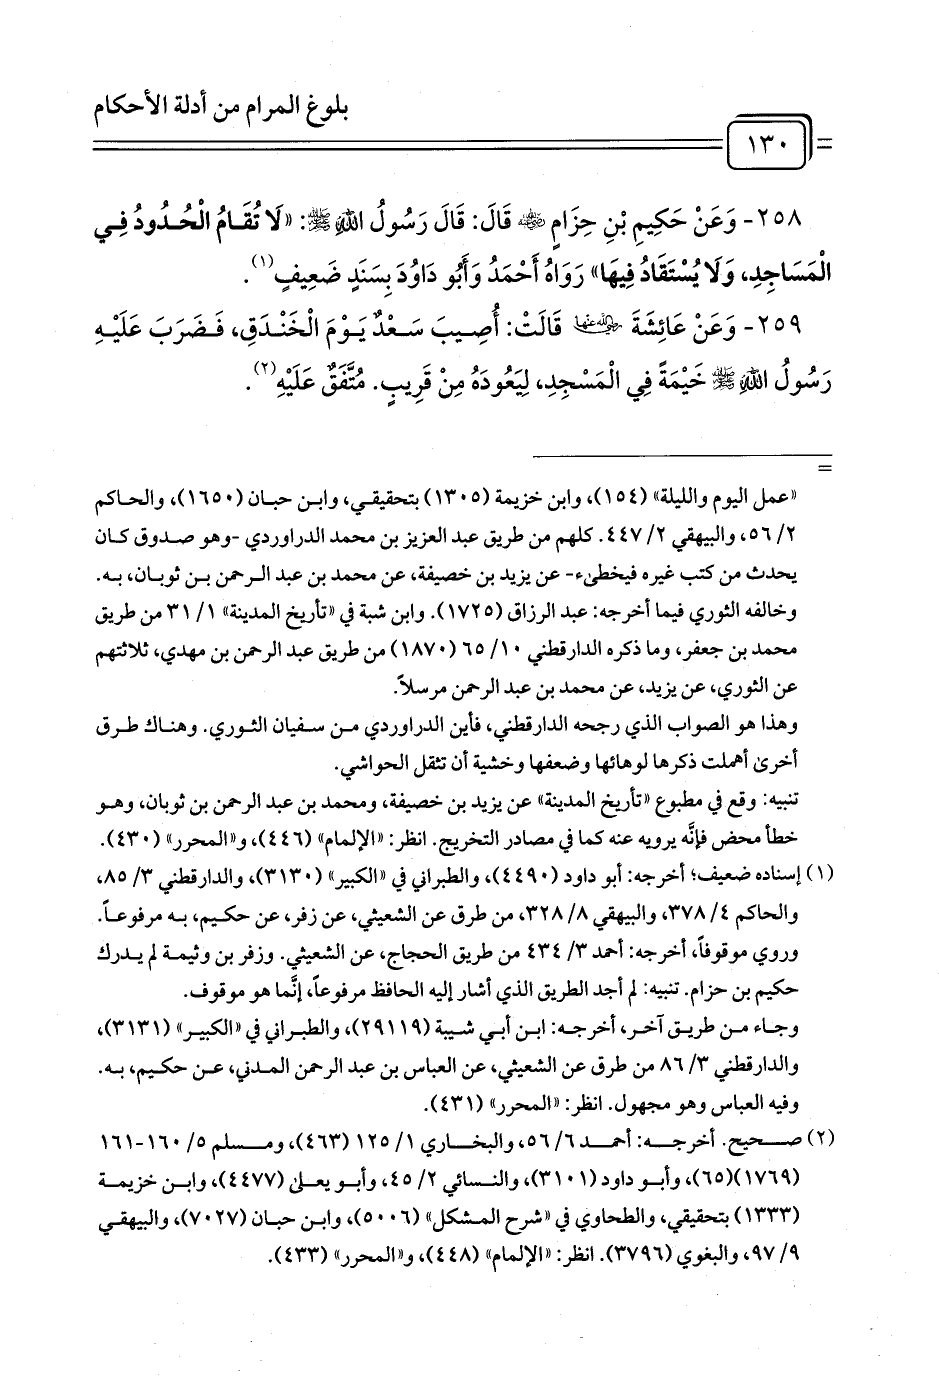 بلوغ المرام من أدلة الأحكام
١٣٠
٢٥٨- وَعَنْ حَكِيمِ بْنِ حِزَامٍ ﵁ قَالَ: قَالَ رَسُولُ اللهِ ﷺ: «لَا تُقَامُ الْحُدُودُ فِي
الْمَسَاجِدِ، وَلَا يُسْتَقَادُ فِيهَا» رَوَاهُ أَحْمَدُ وَأَبُو دَاوُدَ بِسَنَدٍ ضَعِيفٍ(١).
٢٥٩- وَعَنْ عَائِشَةَ ﵂ قَالَتْ: أُصِيبَ سَعْدٌ يَوْمَ الْخَنْدَقِ، فَضَرَبَ عَلَيْهِ
رَسُولُ اللهِ ﷺ خَيْمَةً فِي الْمَسْجِدِ، لِيَعُودَهُ مِنْ قَرِيبٍ. مُتَّفَقٌ عَلَيْهِ(٢).
=
«عمل اليوم والليلة» (١٥٤)، وابن خزيمة (١٣٠٥) بتحقيقي، وابن حبان (١٦٥٠)، والحاكم
٢/ ٥٦، والبيهقي ٢/ ٤٤٧. كلهم من طريق عبد العزيز بن محمد الدراوردي -وهو صدوق كان
يحدث من كتب غيره فيخطىء- عن يزيد بن خصيفة، عن محمد بن عبد الرحمن بن ثوبان، به.
وخالفه الثوري فيما أخرجه: عبد الرزاق (١٧٢٥). وابن شبة في «تأريخ المدينة» ١/ ٣١ من طريق
محمد بن جعفر، وما ذكره الدارقطني ١٠/ ٦٥ (١٨٧٠) من طريق عبد الرحمن بن مهدي، ثلاثتهم
عن الثوري، عن يزيد، عن محمد بن عبد الرحمن مرسلاً.
وهذا هو الصواب الذي رجحه الدارقطني، فأين الدراوردي من سفيان الثوري. وهناك طرق
أخرىٰ أهملت ذكرها لوهائها وضعفها وخشية أن تثقل الحواشي.
تنبيه: وقع في مطبوع «تأريخ المدينة» عن يزيد بن خصيفة، ومحمد بن عبد الرحمن بن ثوبان، وهو
خطأ محض فإنَّه يرويه عنه كما في مصادر التخريج. انظر: «الإلمام» (٤٤٦)، و«المحرر» (٤٣٠).
(١) إسناده ضعيف؛ أخرجه: أبو داود (٤٤٩٠)، والطبراني في «الكبير» (٣١٣٠)، والدارقطني ٣/ ٨٥،
والحاكم ٤/ ٣٧٨، والبيهقي ٨/ ٣٢٨، من طرق عن الشعيثي، عن زفر، عن حكيم، به مرفوعاً.
وروي موقوفاً، أخرجه: أحمد ٣/ ٤٣٤ من طريق الحجاج، عن الشعيثي. وزفر بن وثيمة لم يدرك
حكيم بن حزام. تنبيه: لم أجد الطريق الذي أشار إليه الحافظ مرفوعاً، إنَّما هو موقوف.
وجاء من طريق آخر، أخرجه: ابن أبي شيبة (٢٩١١٩)، والطبراني في «الكبير» (٣١٣١)،
والدارقطني ٣/ ٨٦ من طرق عن الشعيثي، عن العباس بن عبد الرحمن المدني، عن حكيم، به.
وفيه العباس وهو مجهول. انظر: «المحرر» (٤٣١).
(٢) صحيح. أخرجه: أحمد ٦/ ٥٦، والبخاري ١/ ١٢٥ (٤٦٣)، ومسلم ٥/ ١٦٠-١٦١
(١٧٦٩)(٦٥)، وأبو داود (٣١٠١)، والنسائي ٢/ ٤٥، وأبو يعلىٰ (٤٤٧٧)، وابن خزيمة
(١٣٣٣) بتحقيقي، والطحاوي في «شرح المشكل» (٥٠٠٦)، وابن حبان (٧٠٢٧)، والبيهقي
٩/ ٩٧، والبغوي (٣٧٩٦). انظر: «الإلمام» (٤٤٨)، و«المحرر» (٤٣٣).